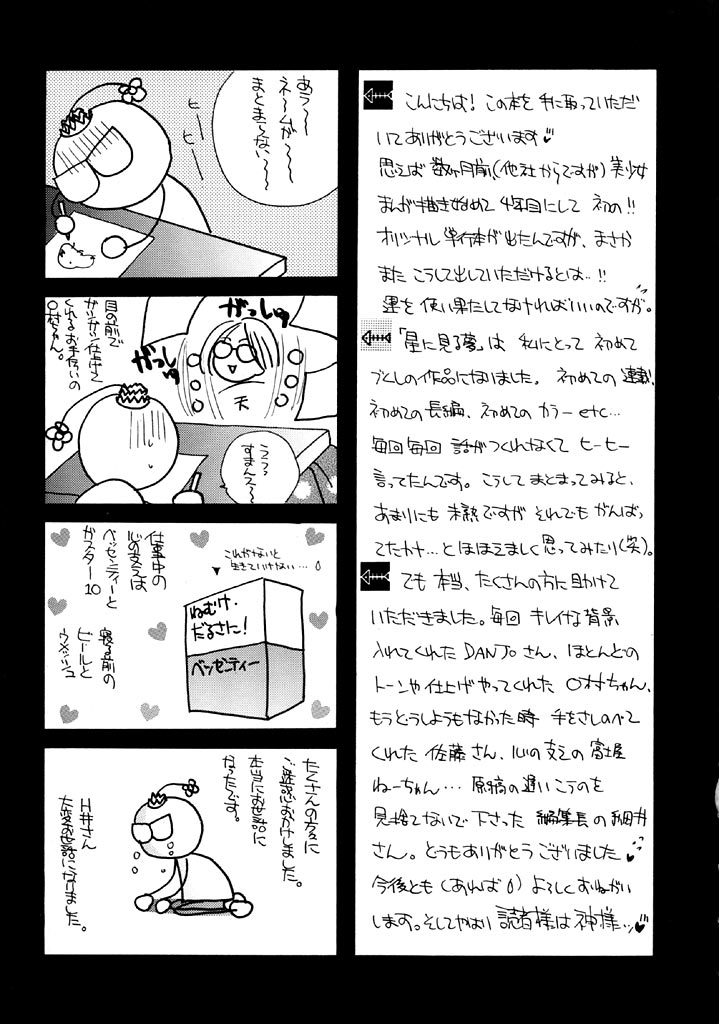 こんにちは！この本を手に取っていただ
いてありがとうございます
思えば数ヶ月前、(他社からですが)美少女
まんが描き始めて4年目にして初の!!
オリジナル単行本が出たんですが、まさか
またこうして出していただけるとは…!!
運を使い果たしてなければいいのですが。
「星に見る夢」は私にとって初めて
づくしの作品になりました。初めての連載、
初めての長編、初めてのカラーetc…
毎回毎回話がつくれなくてヒーヒー
言ってたんです。こうしてまとまってみると、
あまりにも未熟ですがそれでもがんばっ
てたかナ…とほほえましく思ってみたり(笑)。
でも本当、たくさんの方に助けて
いただきました。毎回キレイな背景
入れてくれたDANJoさん、ほとんどの
トーンや仕上げやってくれた〇村ちゃん、
もうどうしようもなかった時手をさしのべて
くれた佐藤さん、心の支えの富士屋
ねーちゃん…原稿の遅いこうのを
見捨てないで下さった編集長の細井
さん。どうもありがとうございました
今後とも(あれば)よろしくおねがい
します。そしてやはり読者様は神様…
あうー〜
ネームが〜〜
まとまらない〜〜
ヒー
ヒー
目の前で
ガツガツ仕事して
くれるお手伝いの
〇村ちゃん。
がっしゅ
がっしゅ
天
ううっ
すまんえ〜
仕事中の
心の支えは
ベッセンティーと
ガスター10
寝る前の
ビールと
ウメッシュ
これがないと
生きていけない…
ねむけ・
だるさに！
ベッセンティー
たくさんの方々に
ご迷惑おかけしました。
本当にお世話に
なったです。
H井さん
大変お世話になりました。